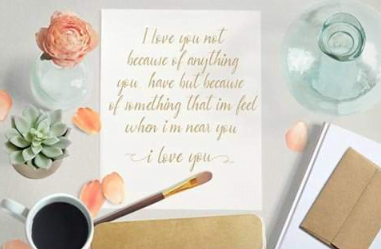 I love you not
because of anything
you have but because
of something that im feel
when i'm near you
i love you